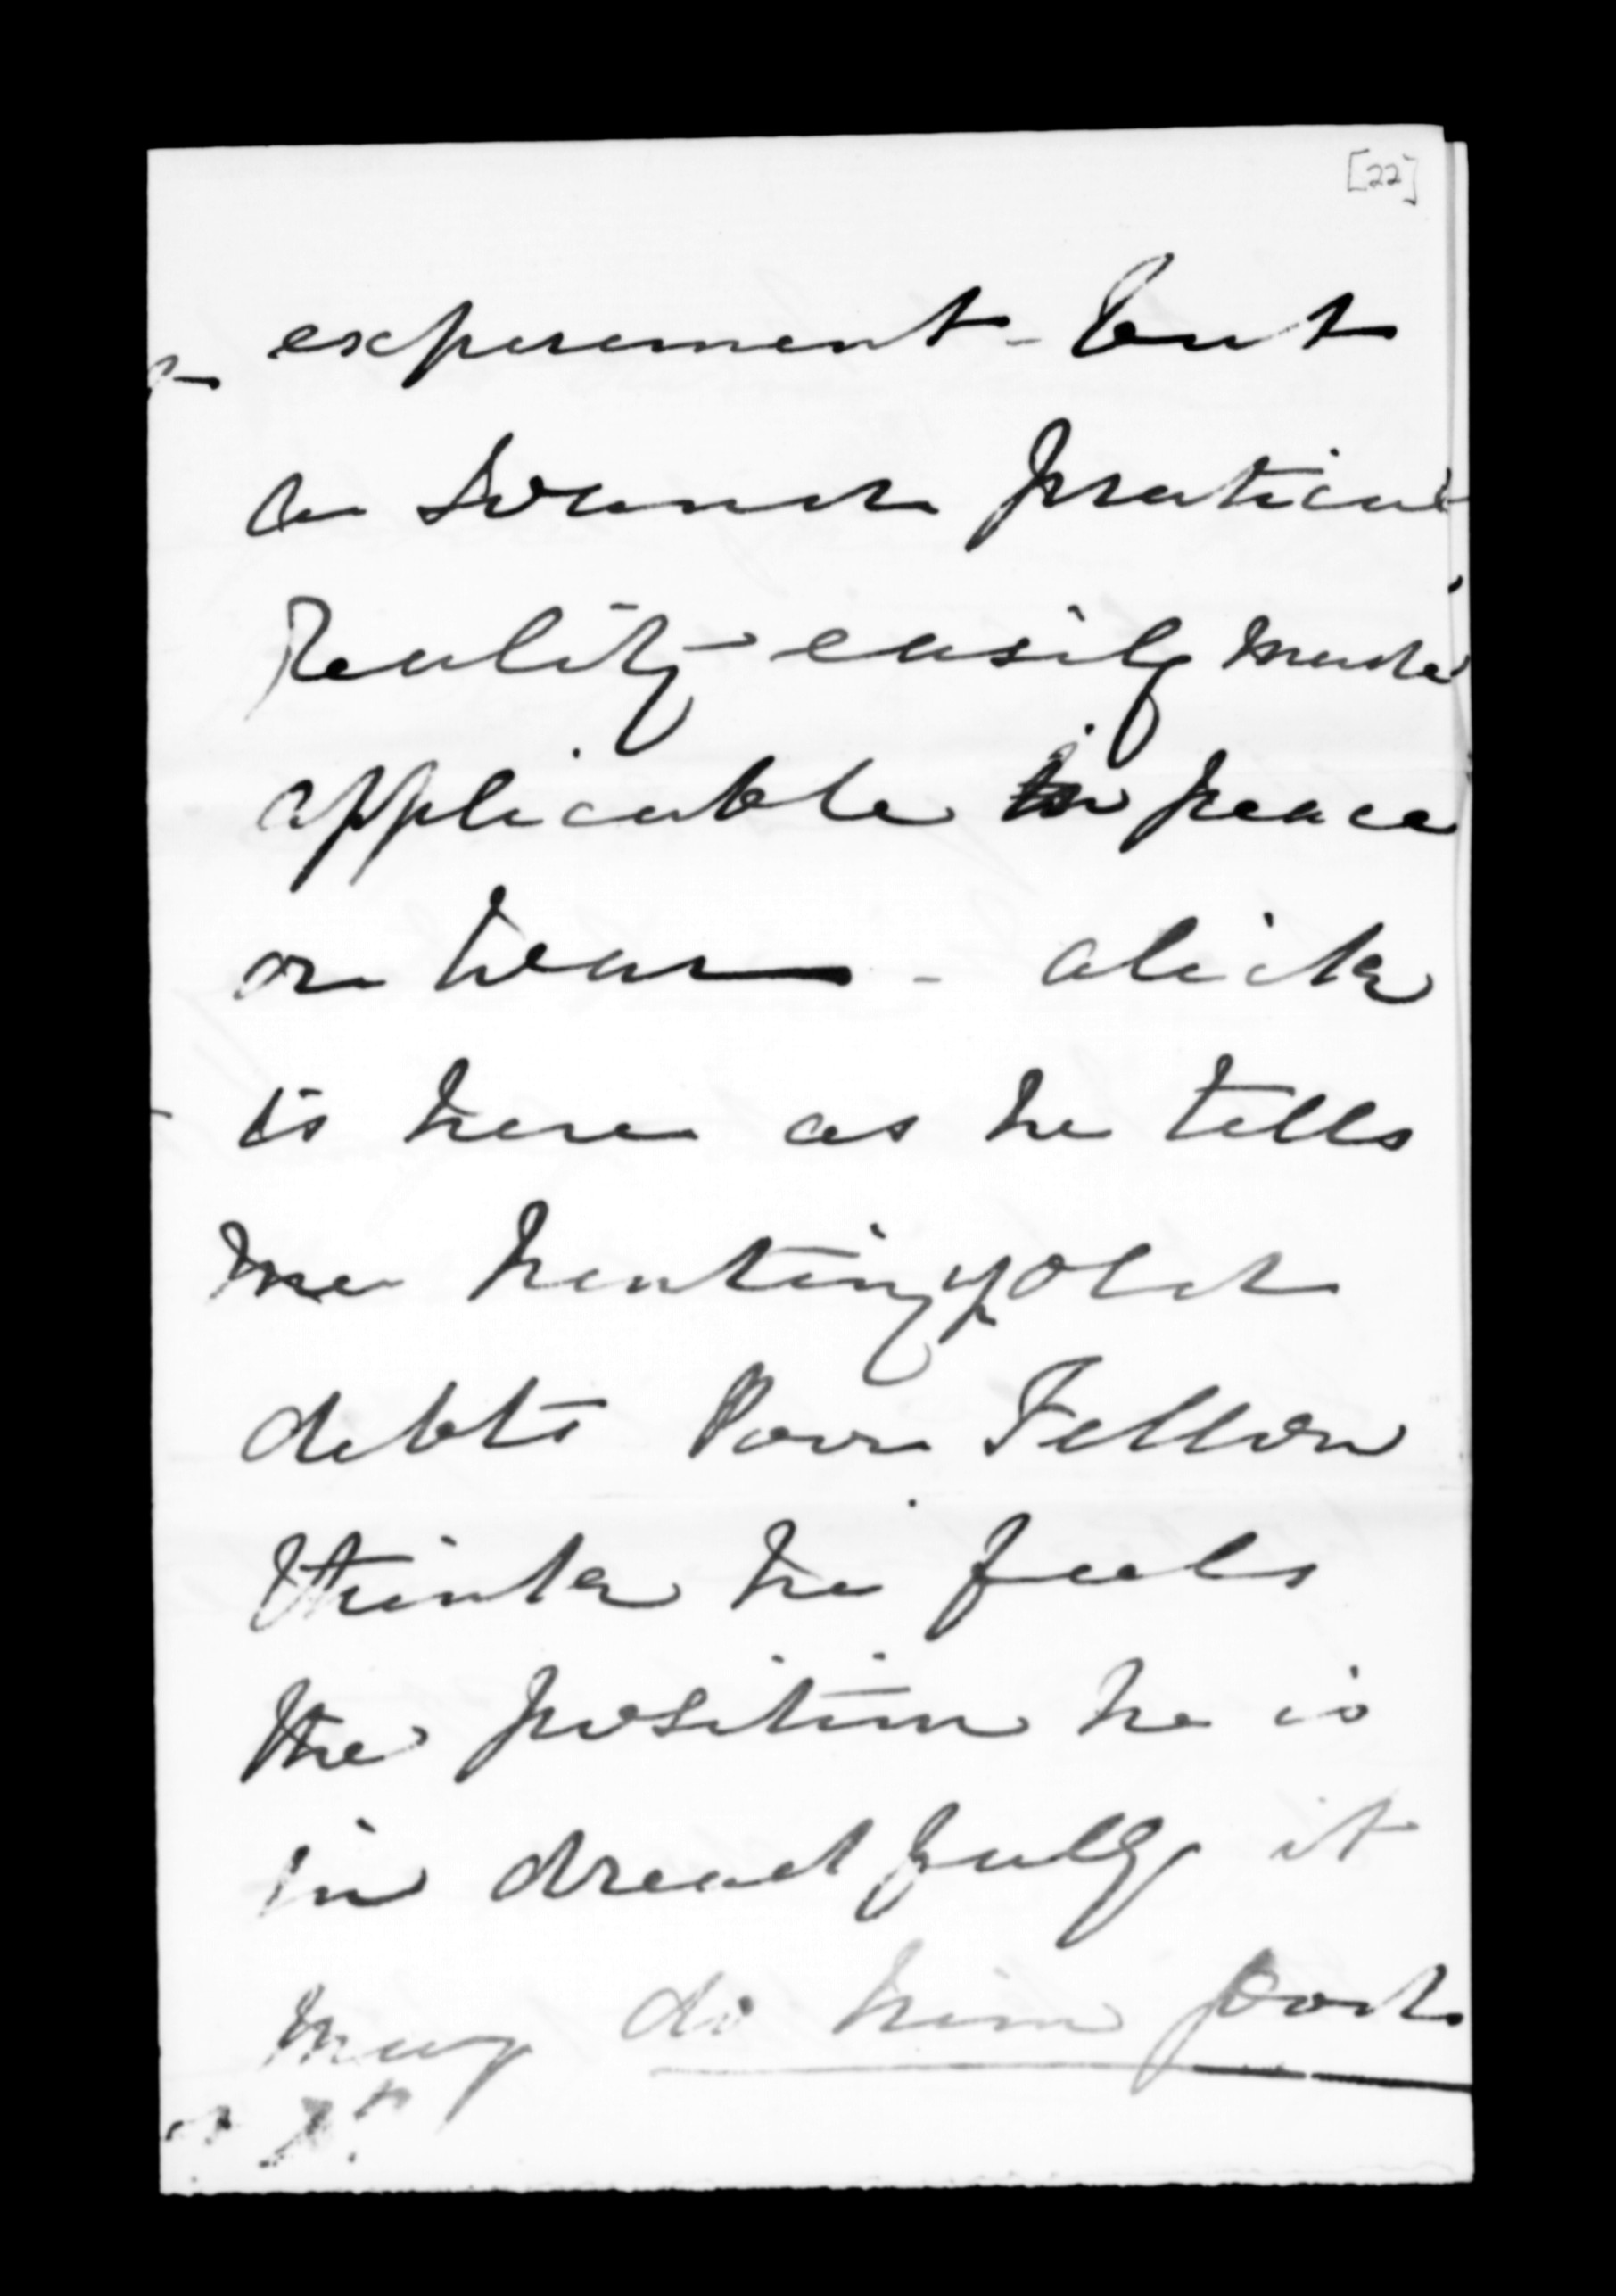 [22]
experement - but
a sound pratical
Reality - easily made
applicable in peace
or War - Alick
is here as he tells
me hunting up old
debts Poor Fellow
I think he feels
the position he is
in dreadfully it
may do him good